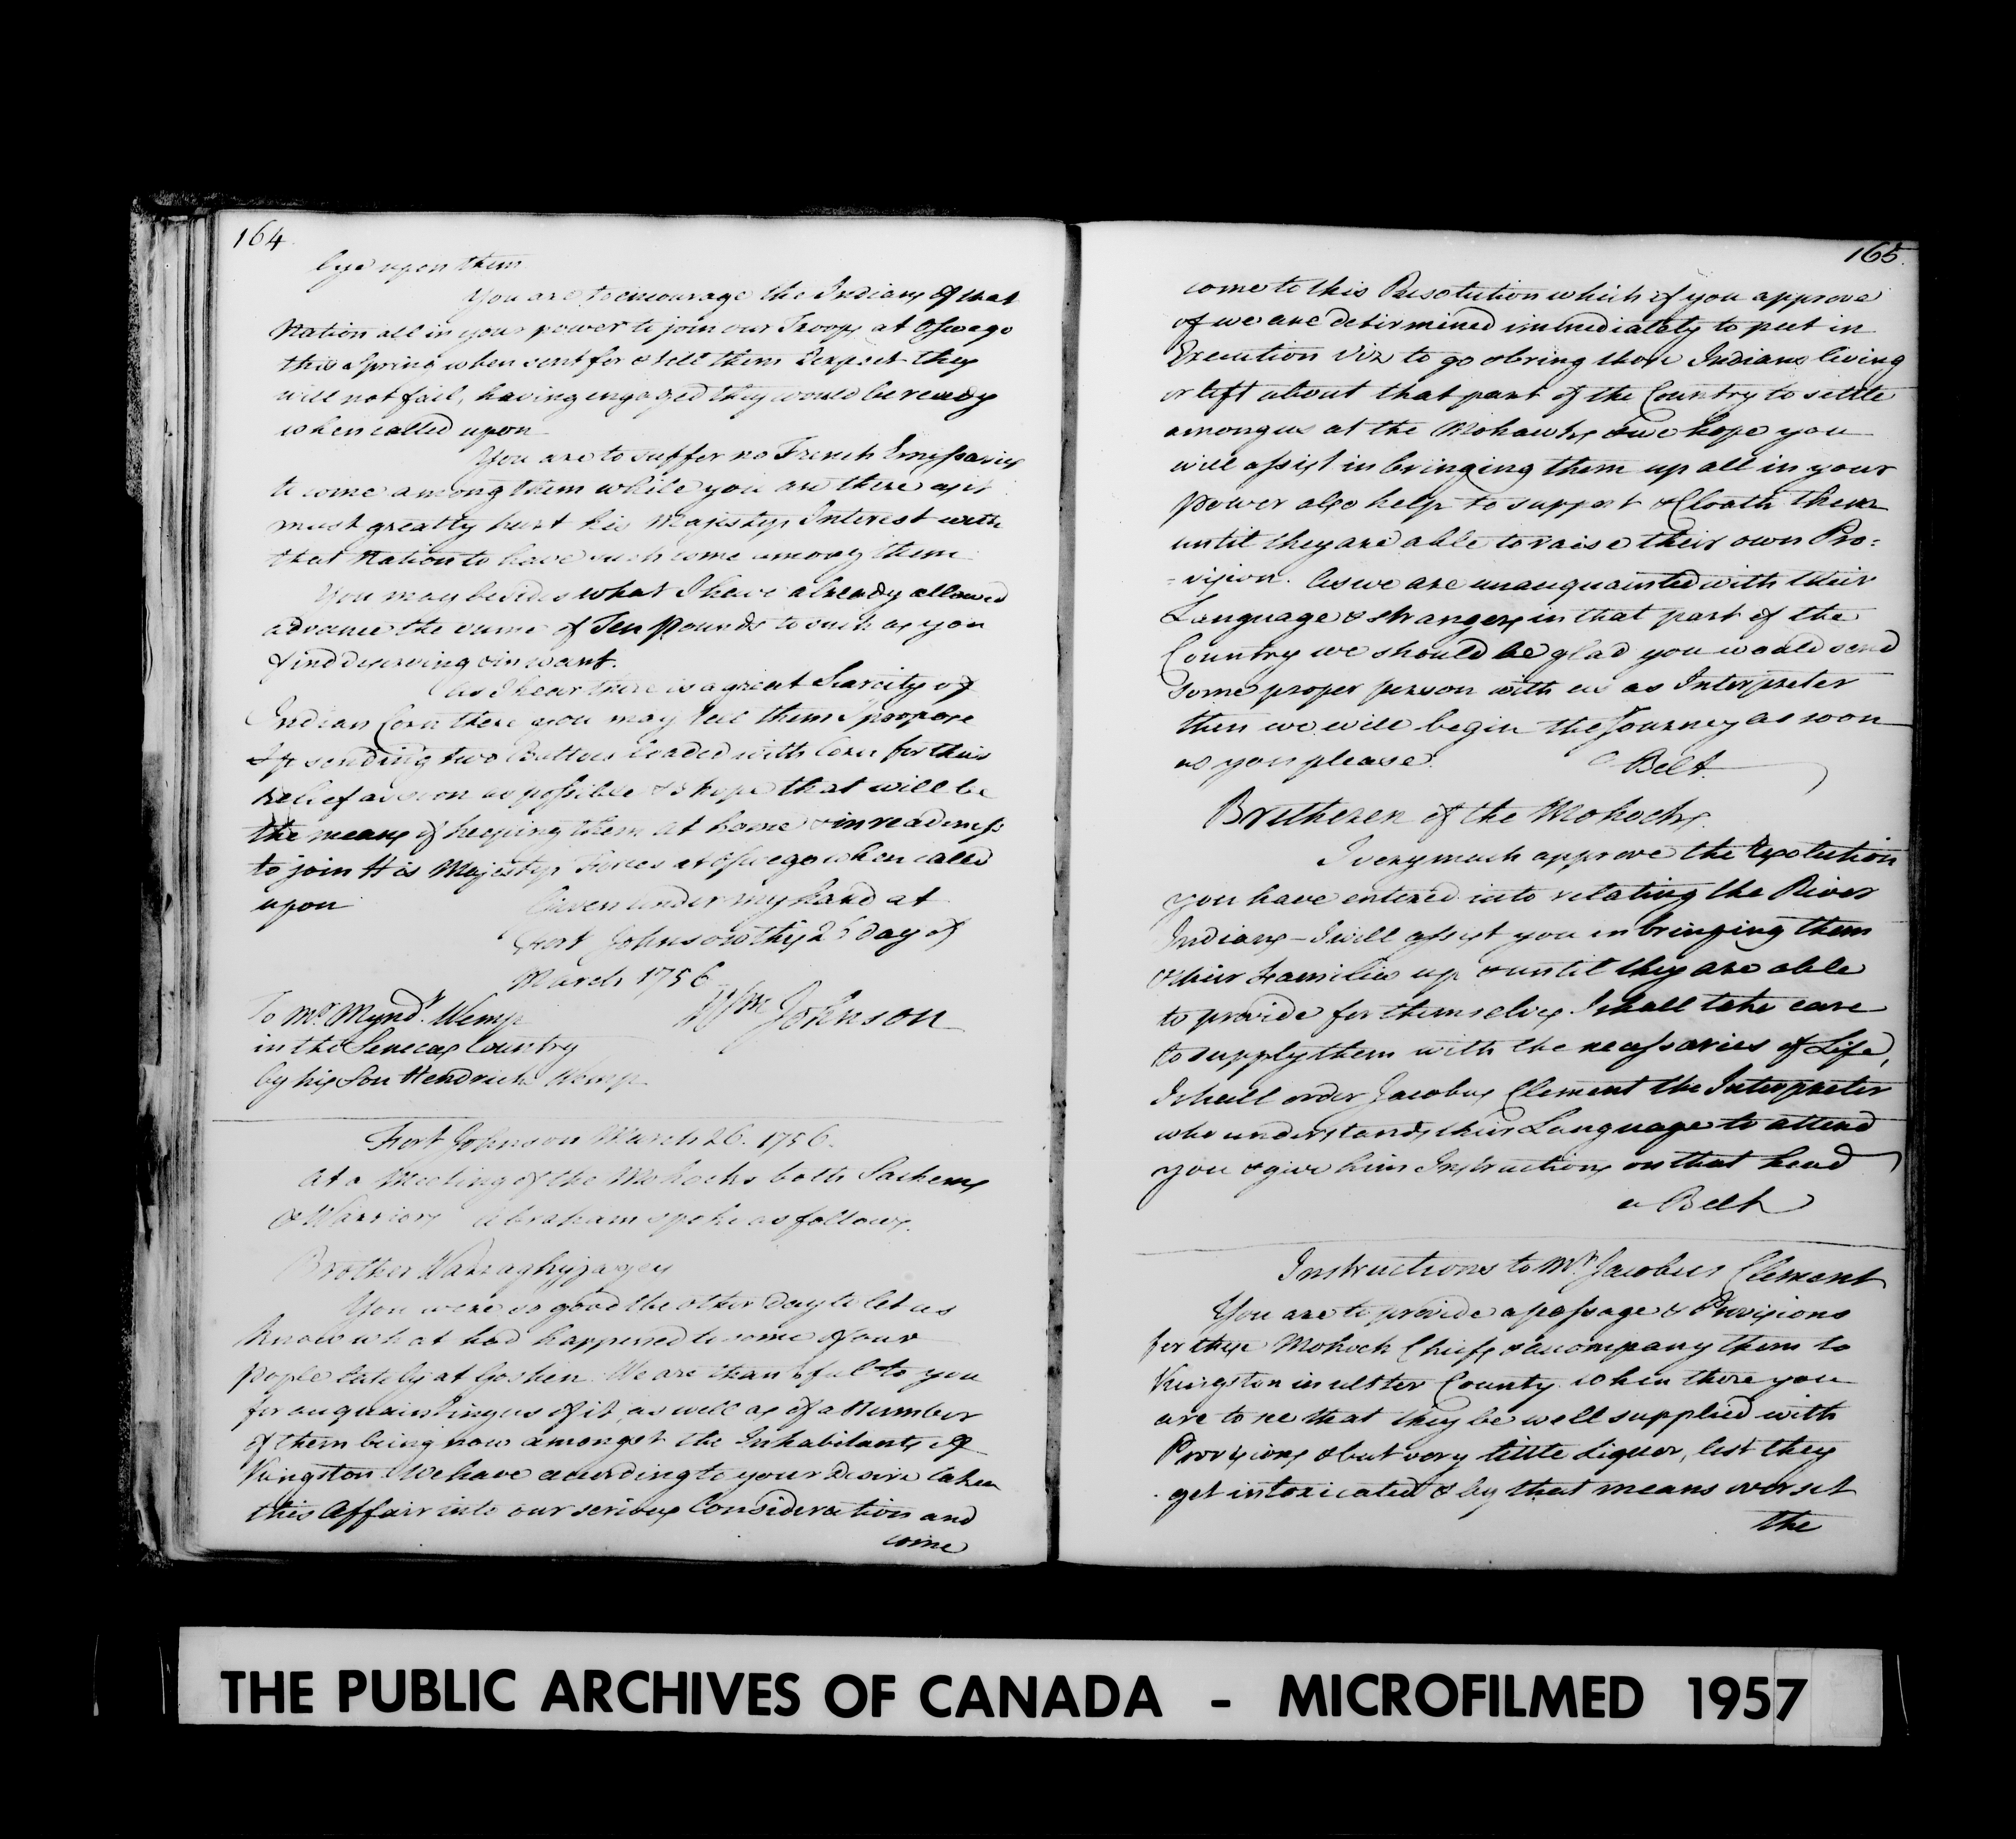 164.
Eye upon them
You are to encourage the Indians of that
Nation all in your power to join our Troops at Oswego
this Spring when sent for & tell them I expect they
will not fail, having engaged they would be ready
when called upon
You are to suffer no French Emyssaries
to come among them while you are there as it
must greatly hurt his Majestys Interest with
that Nation to have such come among them
You may besides what I have already allowed
advance the sume of Ten Pounds to such as you
find deserving & in want.
As I hear there is a great Scarcity of
Indian Corn there you may tell them I propose
sending two Battoes loaded with Corn for their
Relief as soon as possible & I hope that will be
the means of keeping them at home & in readiness
to join His Majestys Forces at Oswego when called
upon
Given under my hand at
Fort Johnson this 26 day of
March 1756
Wm Johnson
To Mr. Mynd.t Wemp
in the Senecas Country
by his Son Hendrick Wemp
Fort Johnson March 26. 1756.
At a Meeting of the Mohocks both Sachems
& Warriors Abraham spoke as follows.
Brother Warraghiyagey
You were so good the other Day to let us
know what had happened to some of our
People lately at Goshen. We are thankful to you
for acquainting us of it, as well as of a Number
of them being now amongst the Inhabitants of
Kingston. We have according to your desire taken
this Affair into our serious Consideration and
come
165.
come to this Resolution which if you approve
of we are determined immediately to put in
Execution Viz to go & bring those Indians living
or left about that part of the Country to settle
among us at the Mohawks & we hope you
will assist in bringing them up all in your
power also help to support & Cloath them
until they are able to raise their own Pro=
=vision. As we are unacquainted with their
Language & strangers in that part of the
Country we should be glad you would send
some proper person with us as Interpreter
then we will begin the Journey as soon
as you please. a Belt.
Bretheren of the Mohocks.
I very much approve the Resolution
you have entered into relating the River
Indians - I will assist you in bringing them
& their Families up & until they are able
to provide for themselves I shall take care
to supply them with the necessaries of Life,
I shall order Jacobus Clement the Interpreter
who understands their Language to attend
you & give him Instructions on that head
a Belt
Instructions to Mr. Jacobus Clement
You are to provide a passage & Provisions
for these Mohock Chiefs & accompany them to
Kingston in ulster County. When there you
are to see that they be well supplied with
Provisions & but very little Liquor, lest they
get intoxicated & by that means overset
the
THE PUBLIC ARCHIVES OF CANADA - MICROFILMED 1957